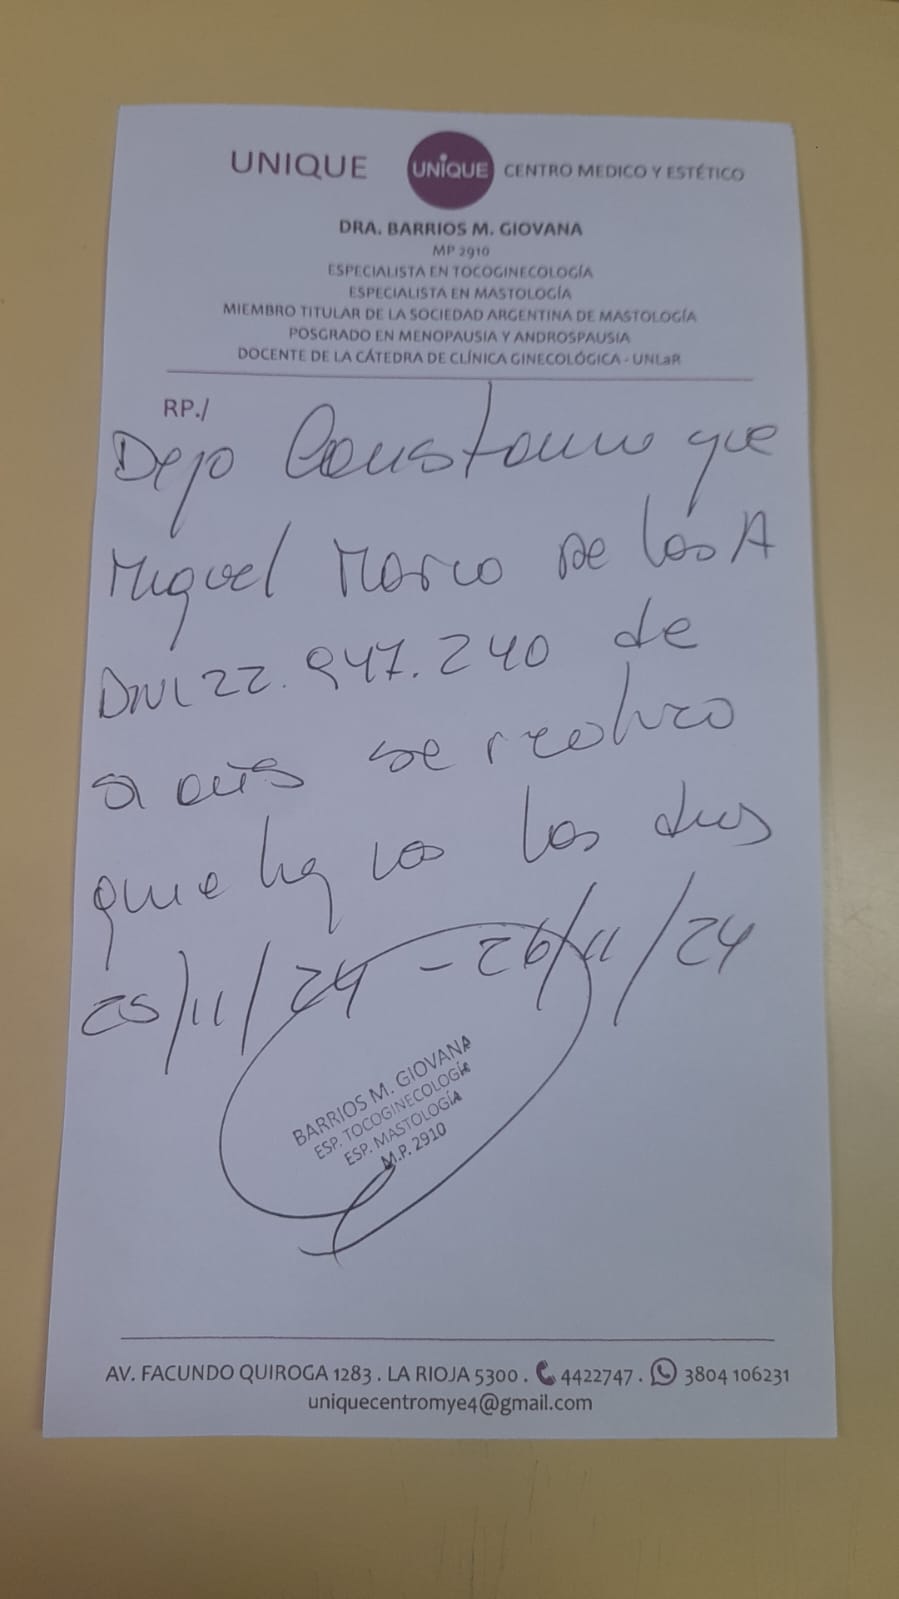 UNIQUE UNIQUE CENTRO MEDICO Y ESTÉTICO
DRA. BARRIOS M. GIOVANA
MP 2910
ESPECIALISTA EN TOCOGINECOLOGÍA
ESPECIALISTA EN MASTOLOGÍA
MIEMBRO TITULAR DE LA SOCIEDAD ARGENTINA DE MASTOLOGÍA
POSGRADO EN MENOPAUSIA Y ANDROSPAUSIA
DOCENTE DE LA CÁTEDRA DE CLÍNICA GINECOLÓGICA - UNLaR
RP./
Dejo Constancia que
Miguel de los A
DNI 22.947.240 de
se realizo
los dias
25/11/24 - 26/11/24
BARRIOS M. GIOVANA
ESP. TOCOGINECOLOGÍA
ESP. MASTOLOGÍA
M.P. 2910
AV. FACUNDO QUIROGA 1283 . LA RIOJA 5300 . 4422747 . 3804 106231
uniquecentromye4@gmail.com